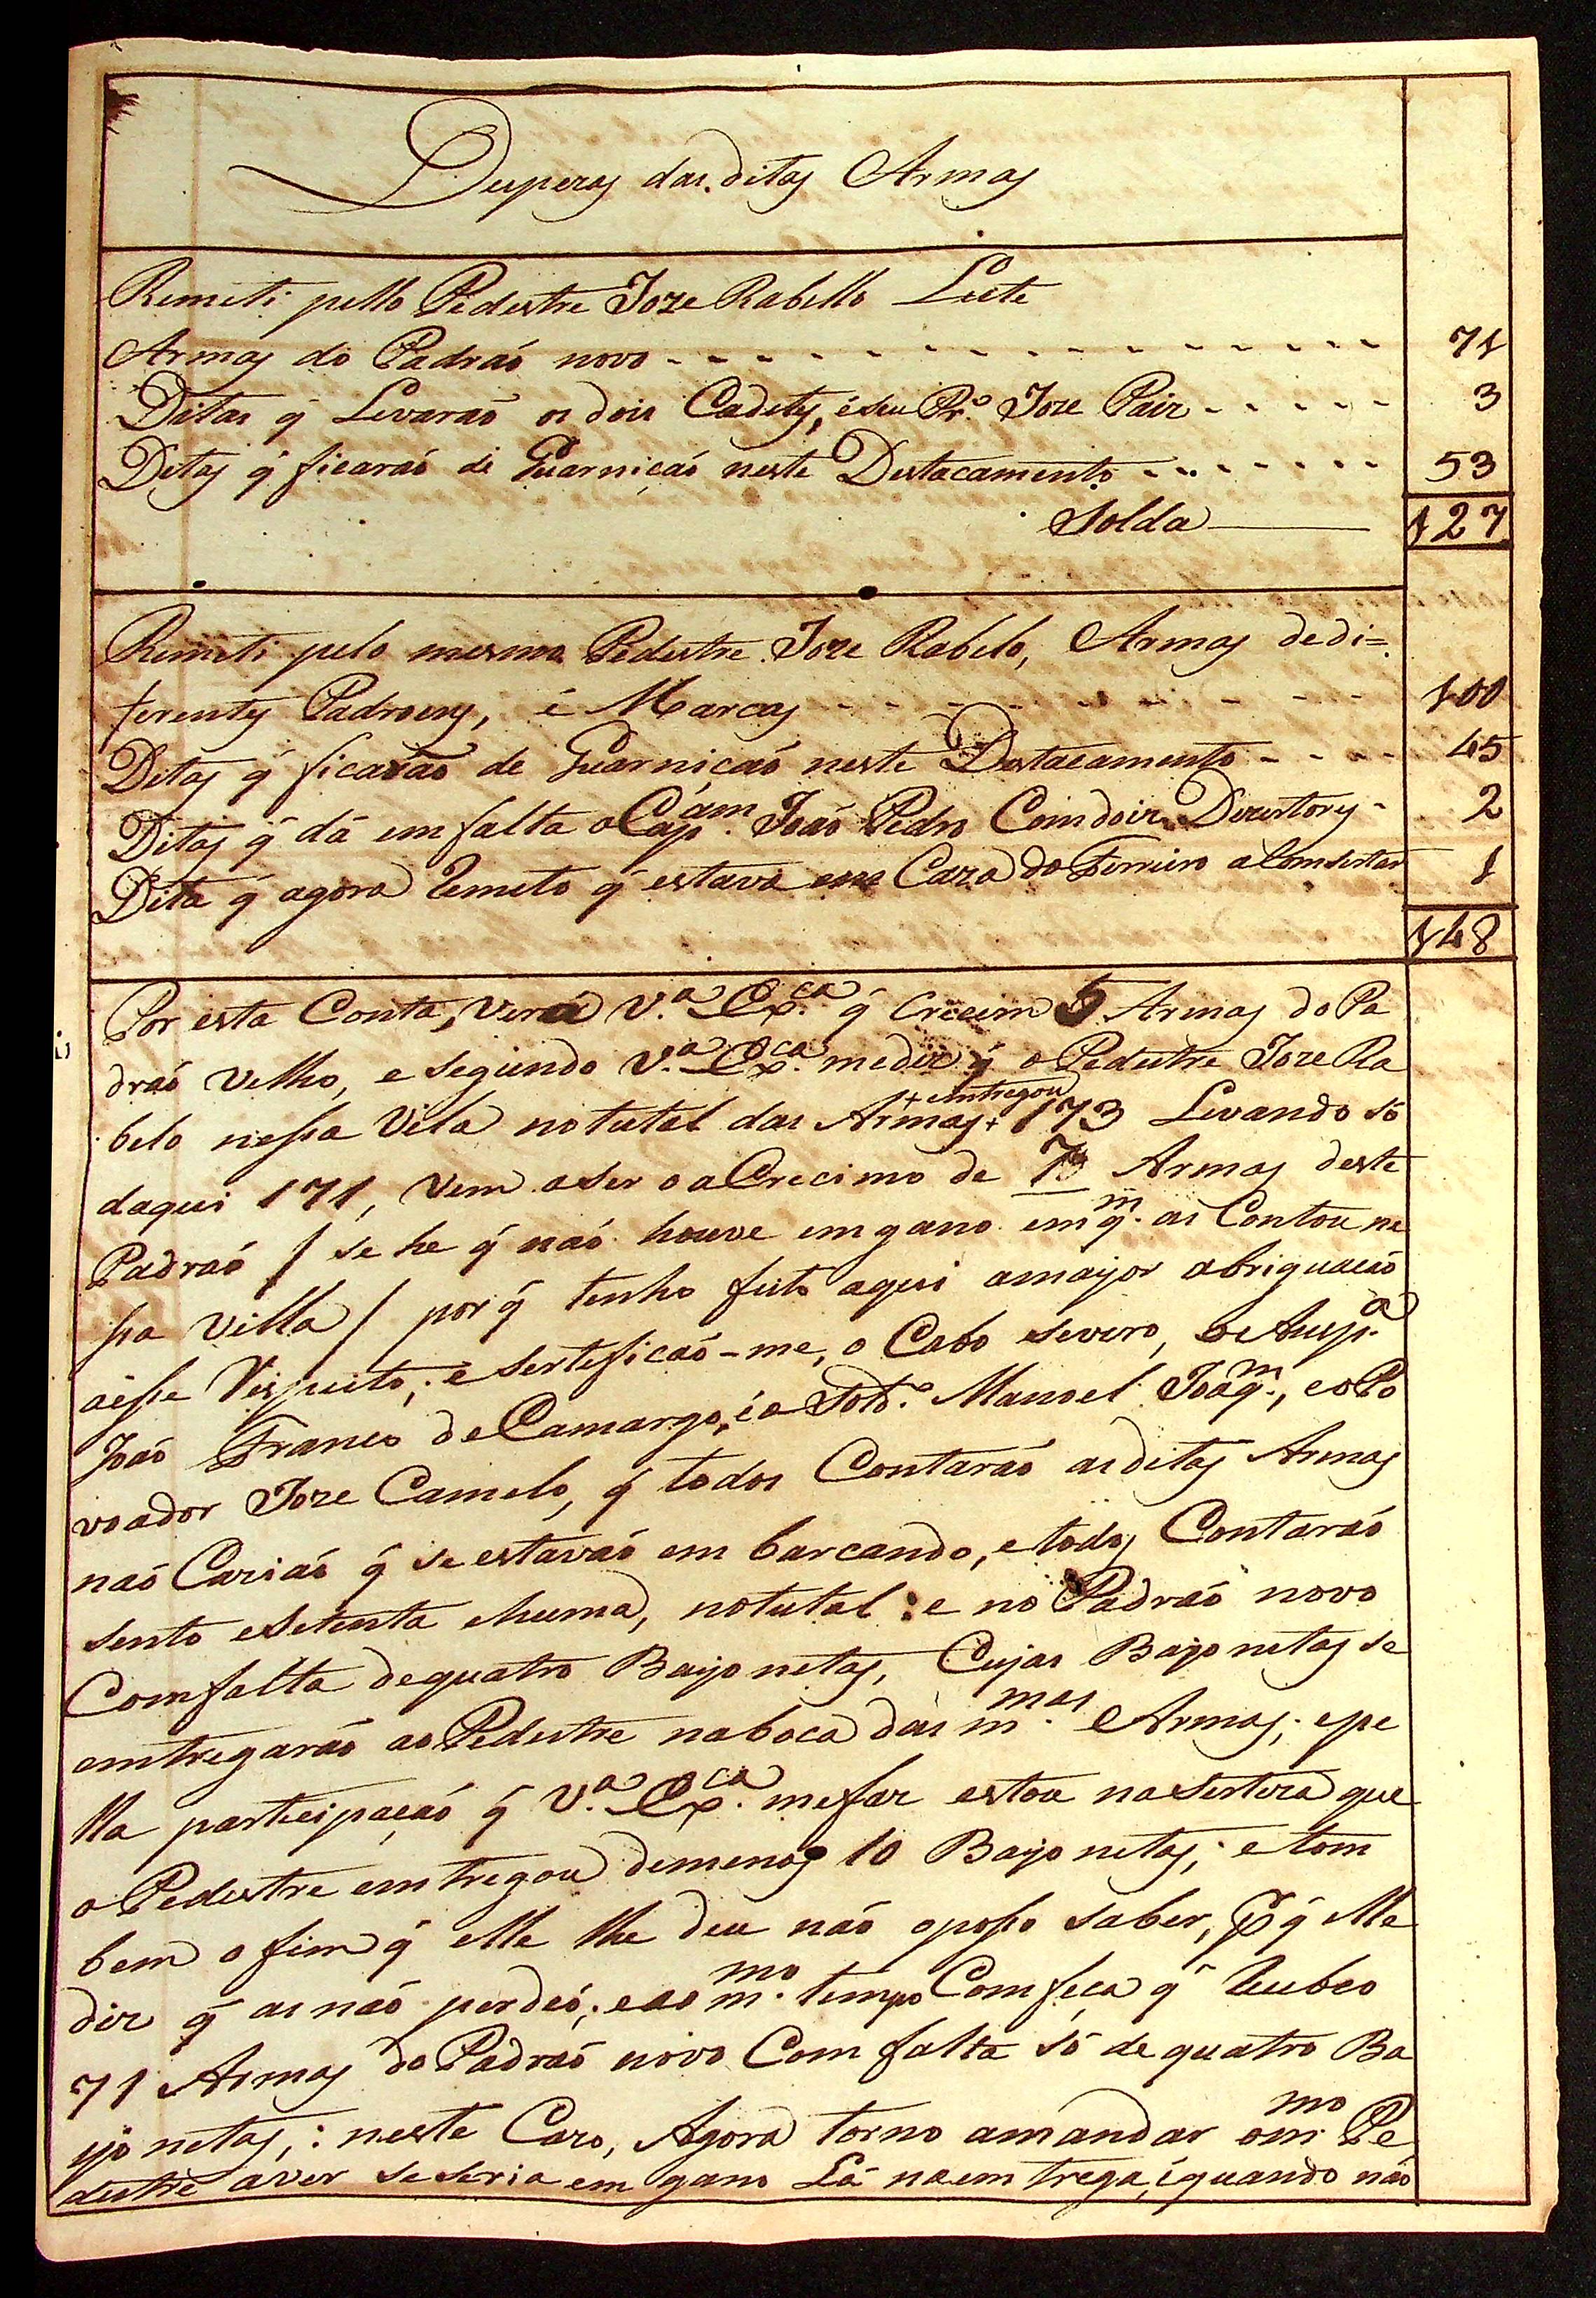 Despezas das ditas Armas
Remeti pello Pedestre Joze Rabello Leite
Armas do Padraó novo - - - - - - - - - - - 71
Ditas q̃ Levaraó os dois Cadetes, é seu Pr.º Joze Pair - - - - - 3
Ditas q̃ ficaraó de Guarniçaó neste Destacamento - - - - - - 53
Solda 127
Remeti pelo mesmo Pedestre Joze Rabelo, Armas de di=
ferentes Padroens, é Marcas - - - - - - - - 100
Ditas q̃ ficaraó de Guarniçaó neste Destacamento - - - - 45
Ditas q̃ dá em falta o Cap.am Joaó Pedro Com dois Dezertores - 2
Dita q̃ agora Remeto q̃ estava em Caza do Ferreiro a Comsertar 1
148
Por esta Conta, verá V.a Ex.ca q̃ Crecem Armas do Pa
draó velho, e segundo V.a Ex.ca me diz q̃ o Pedestre Joze Ra
belo nessa Vila no tutal das Armas + entregou 173 Levando só
daqui 171, vem a ser o a Crecimo de Armas deste
Padraó / se he q̃ naó houve emgano em q.m as Contou ne
ssa villa / por q̃ tenho feito aqui a mayor abriguacaó
aésse Respeito; e sertificaó-me, o Cabo severo, o Ansp.a
Joaó Franco de Camargo, é o Sold.º Manoel Joaq.m, e o Po
voador Joze Camelo, q̃ todos Contaraó as ditas Armas
naó Cariaó q̃ se estavaó em barcando, e todos Contaraó
sento e Setenta e huma, no tutal: e no Padraó novo
Com falta de quatro Bayo netas, Cujas Bayo netas se
emtregaraó ao Pedestre na boca das m.mas Armas; e pe
lla participaçaó q̃ V.a Ex.ca me faz estou na serteza que
o Pedestre emtregou de menos 10 Bayo netas; e tom
bem o fim q̃ elle lhe deu naó o posso saber, p q̃ elle
diz q̃ as naó perdeó; e ao m.mo tempo Comfeça q̃ Rubeo
71 Armas do Padraó novo Com falta só de quatro Ba
yo netas,: neste Cazo, Agora torno a mandar o m.mo Pe
destre a ver se seria em gano Lá na em trega, é quando naó